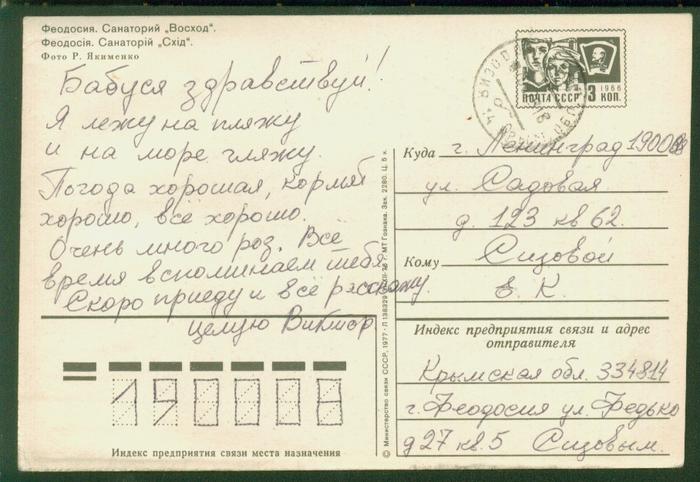 Феодосия. Санаторий „Восход“.
Феодосія. Санаторій „Схід“.
Фото Р. Якименко
Бабуся здравствуй!
Я лежу на пляжу
и на море гляжу.
Погода хорошая, кормят
хорошо, всё хорошо.
Очень много роз. Всё
время вспоминаем тебя.
Скоро приеду и всё расскажу.
целую Виктор
ПОЧТА СССР 3 КОП.
1966
Куда г. Ленинград 190068
ул. Садовая
д. 123 кв 62.
Кому Сизовой
в. К.
Индекс предприятия связи и адрес
отправителя
Крымская обл. 334814
г. Феодосия ул. Федько
д 27 кв. 5 Сизовым.
190008
Индекс предприятия связи места назначения
© Министерство связи СССР, 1977. МТ Гознака. Зак. 2280. Ц. 5 к.